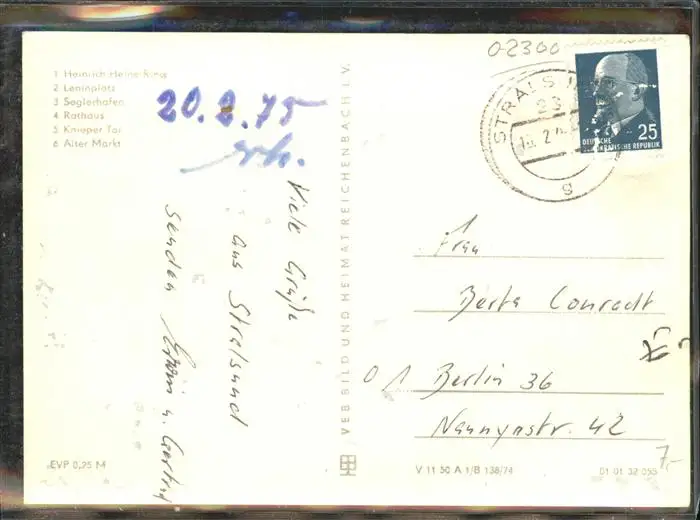 1 Heinrich Heine Ring
2 Leninplatz
3 Seglerhafen
4 Rathaus
5 Knieper Tor
6 Alter Markt
20.2.75
Viele Grüße
aus Stralsund
senden Erwin u. Gertrud
EVP 0,25 M
VEB BILD UND HEIMAT REICHENBACH i. V.
0-2300
STRALSUND
23
2
g
25
DEUTSCHE
DEMOKRATISCHE REPUBLIK
Frau
Berta Conradt
01 Berlin 36
Naunynstr. 42
7,-
V 11 50 A 1/B 138/74
01 01 32 055